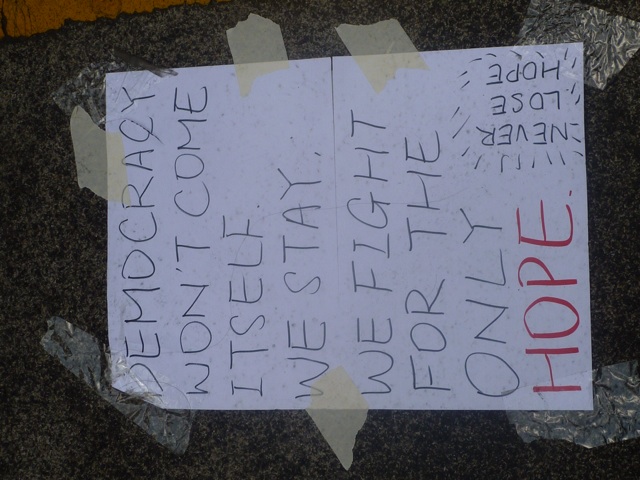 DEMOCRACY
WON'T COME
ITSELF.
WE STAY.
WE FIGHT
FOR THE
ONLY
HOPE.
NEVER
LOSE
HOPE